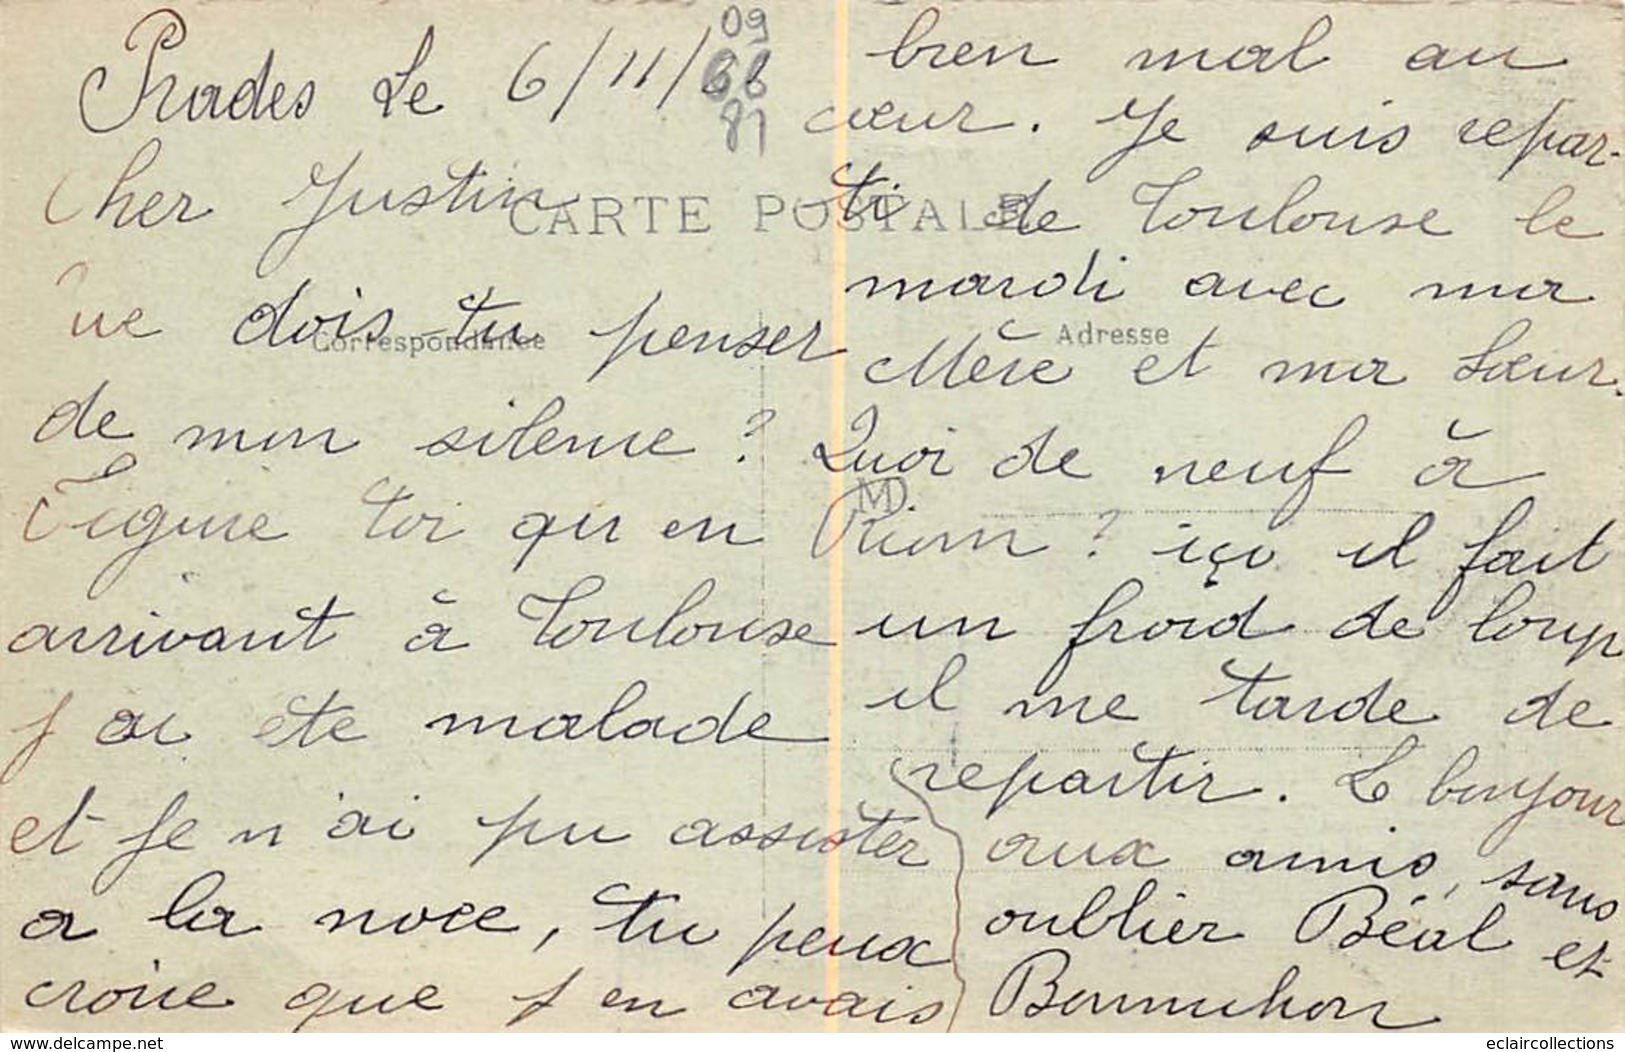 Prades Le 6/11/
09
66
81
Cher Justin
CARTE POSTALE
Correspondance
Que dois-tu penser
de mon silence ?
Figure toi qu en
arrivant à Toulouse
j ai été malade
et je n'ai pu assister
a la noce, tu peux
croire que j en avais
bien mal au
cœur. Je suis repar-
ti de Toulouse le
mardi avec ma
Adresse
Mère et ma sœur.
Quoi de neuf à
MD
Riom ? içi il fait
un froid de loup
il me tarde de
repartir. Le bonjour
aux amis, sans
oublier Béal et
delcampe.net
eclaircollections